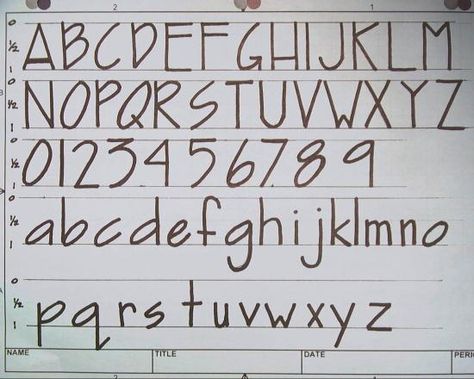 2
0 ½ 1 ABCDEFGHIJKLM
B
0 ½ 1 NOPQRSTUVWXYZ
0 ½ 1 0123456789
0 ½ 1 abcdefghijklmno
A
0 ½ 1 pqrstuvwxyz
NAME TITLE DATE PERI
2 1